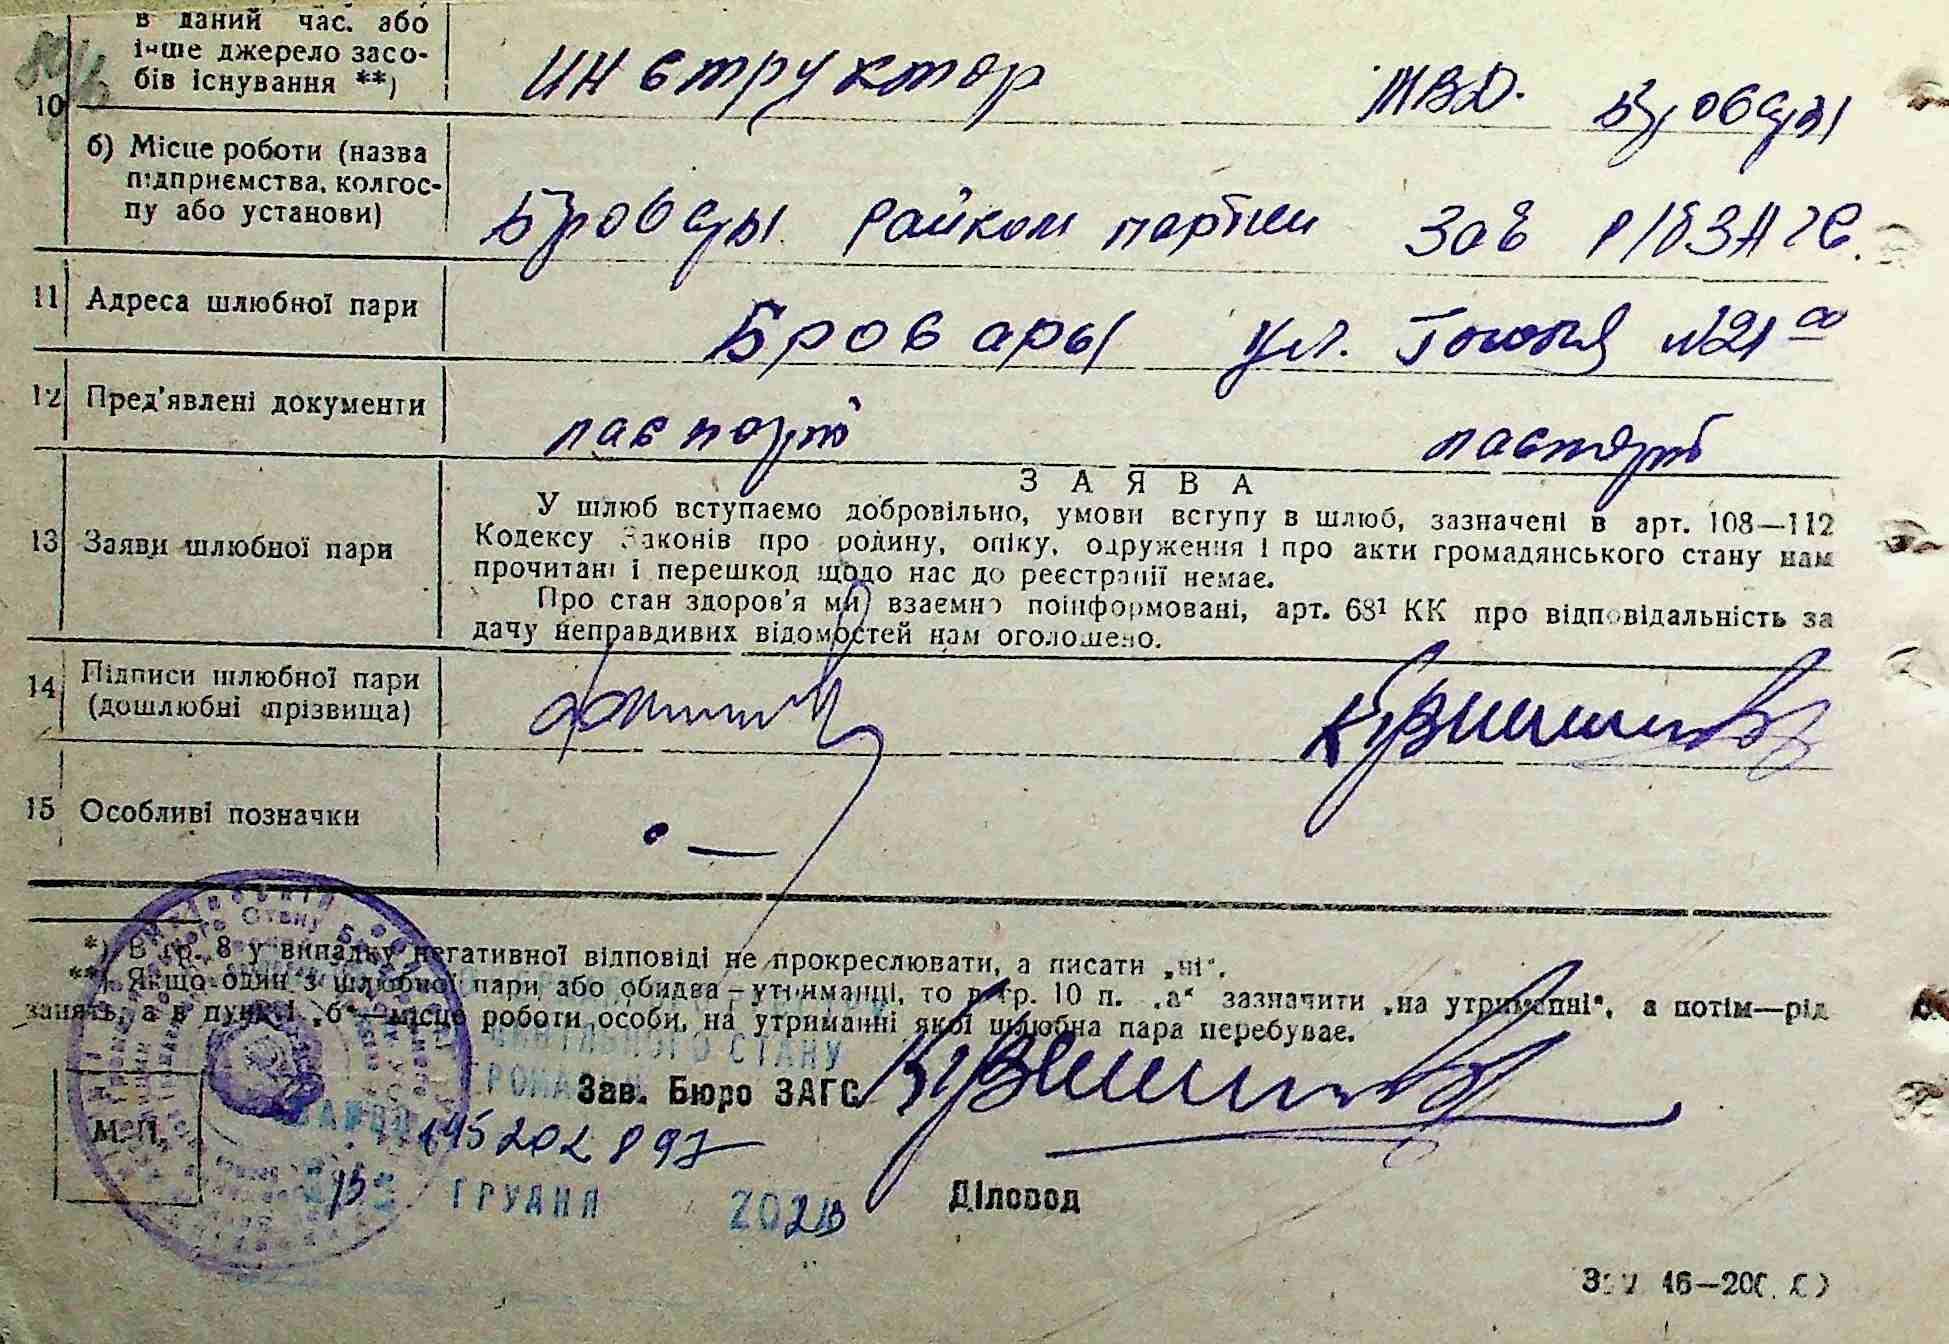 в даний час. або
інше джерело засо-
бів існування **)
инструктор
10
б) Місце роботи (назва
підприємства, колгос-
пу або установи)
Бровары Райком партии Зав Р/БЗАГС.
11 Адреса шлюбної пари
Бровары ул. Гоголя №21 а
12 Пред'явлені документи
паспорт паспорт
13 Заяви шлюбної пари
ЗАЯВА
У шлюб вступаємо добровільно, умови вступу в шлюб, зазначені в арт. 108—112
Кодексу Законів про родину, опіку, одруження і про акти громадянського стану нам
прочитані і перешкод щодо нас до реєстрації немає.
Про стан здоров'я ми взаємно поінформовані, арт. 68¹ КК про відповідальність за
дачу неправдивих відомостей нам оголошено.
14 Підписи шлюбної пари
(дошлюбні прізвища)
15 Особливі позначки
. —
*) В гр. 8 у випадку негативної відповіді не прокреслювати, а писати „ні“.
**) Якщо один з шлюбної пари або обидва—утриманці, то в гр. 10 п. „а“ зазначити „на утриманні“, а потім—рід
занять, а в пункті „б“—місце роботи особи, на утриманні якої шлюбна пара перебуває.
СТАНУ
Зав. Бюро ЗАГС
М. П.
ГРУДНЯ 20
Діловод